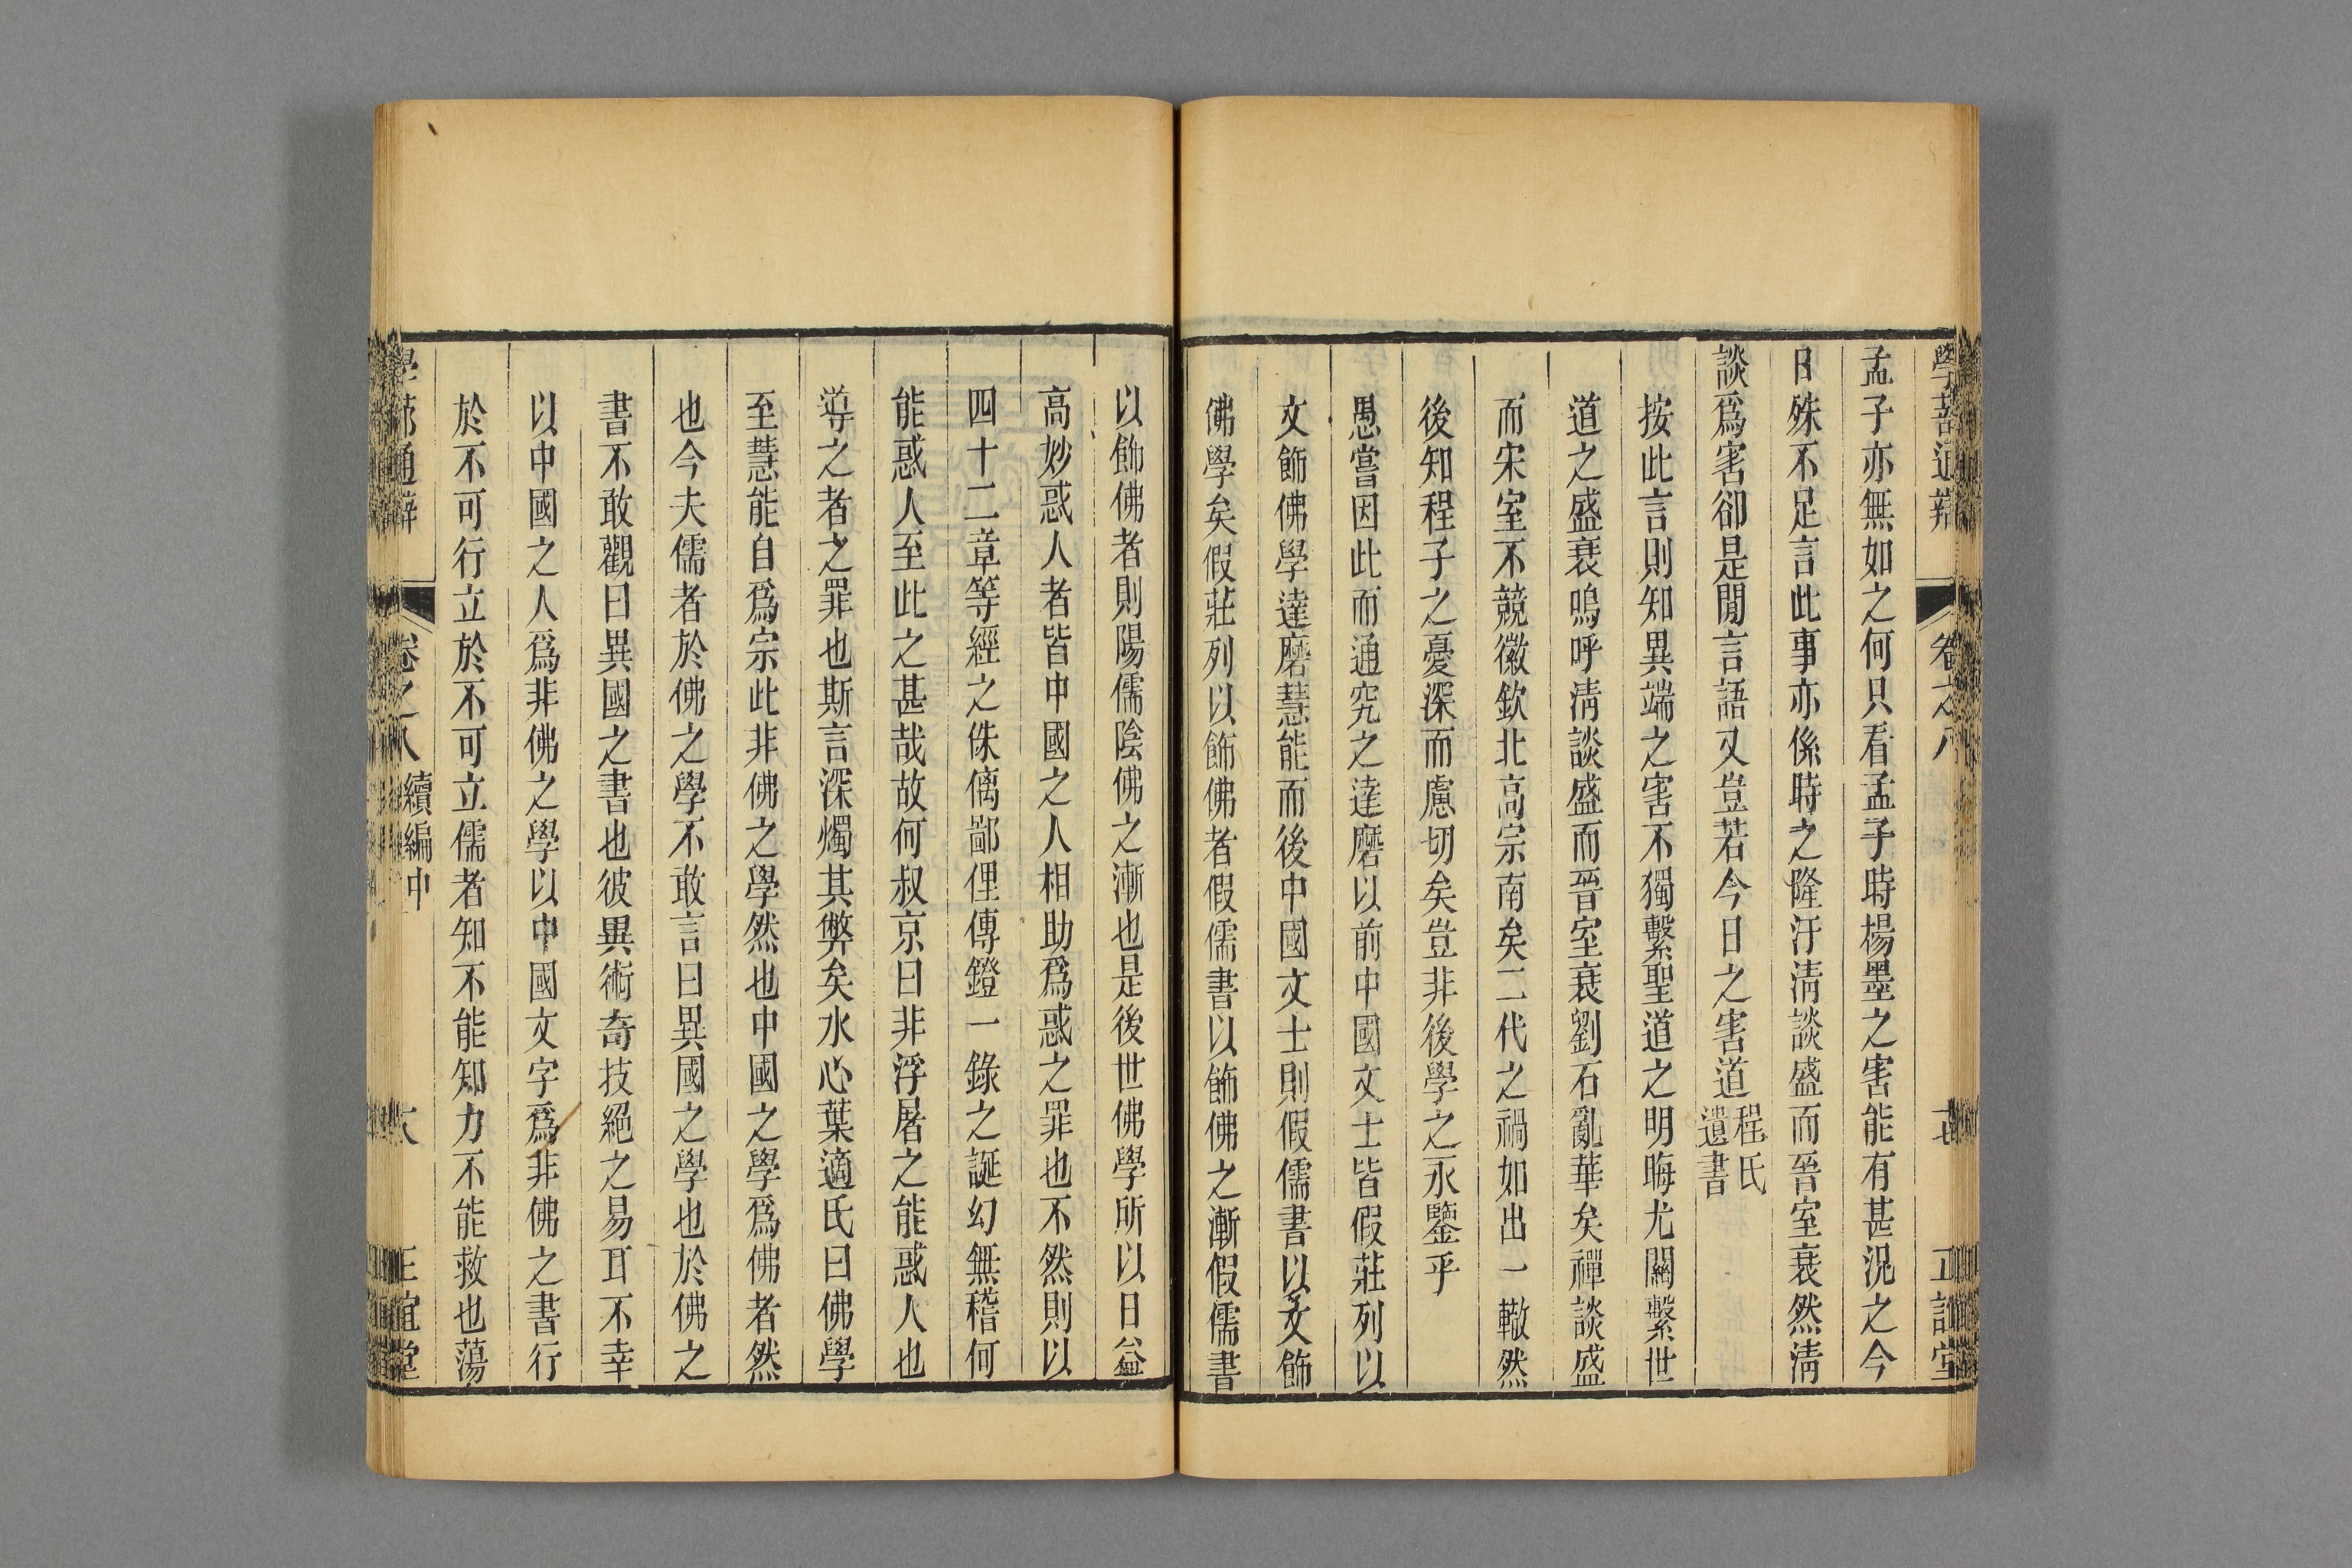 學蔀通辯 卷之八 正誼堂
孟子亦無如之何只看孟子時楊墨之害能有甚況之今
日殊不足言此事亦係時之隆汙清談盛而晉室衰然清
談爲害卻是閒言語又豈若今日之害道程氏遺書
按此言則知異端之害不獨繫聖道之明晦尤關繫世
道之盛衰嗚呼清談盛而晉室衰劉石亂華矣禪談盛
而宋室不競徽欽北高宗南矣二代之禍如出一轍然
後知程子之憂深而慮切矣豈非後學之永鑒乎
愚嘗因此而通究之達磨以前中國文士皆假莊列以
文飾佛學達磨慧能而後中國文士則假儒書以文飾
佛學矣假莊列以飾佛者假儒書以飾佛之漸假儒書
以飾佛者則陽儒陰佛之漸也是後世佛學所以日益
高妙惑人者皆中國之人相助爲惑之罪也不然則以
四十二章等經之侏𠌯鄙俚傳鐙一錄之誕幻無稽何
能惑人至此之甚哉故何叔京曰非浮屠之能惑人也
導之者之罪也斯言深燭其弊矣水心葉適氏曰佛學
至慧能自爲宗此非佛之學然也中國之學爲佛者然
也今夫儒者於佛之學不敢言曰異國之學也於佛之
書不敢觀曰異國之書也彼異術奇技絕之易耳不幸
以中國之人爲非佛之學以中國文字爲非佛之書行
於不可行立於不可立儒者知不能知力不能救也蕩
學蔀通辯 卷之八 續編中 正誼堂